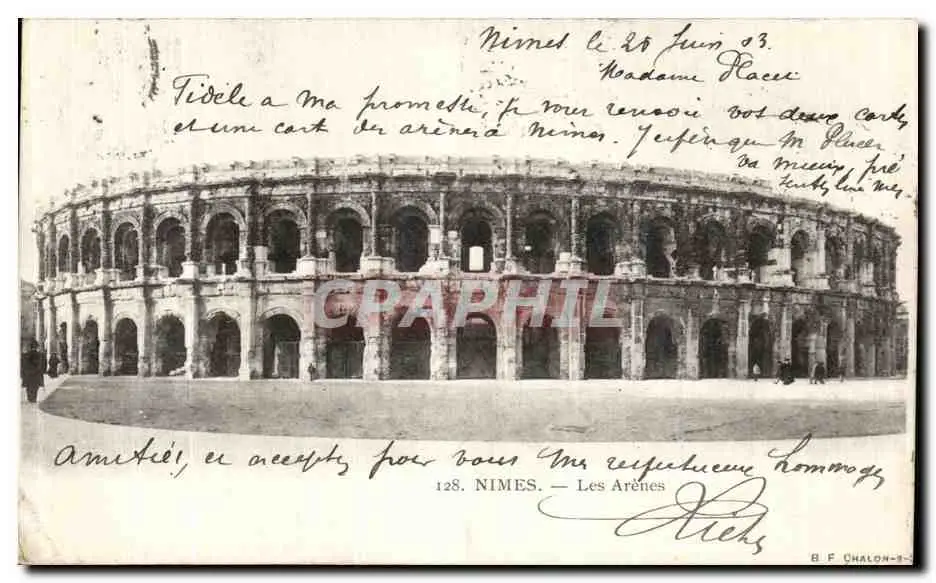 Nimes le 20 Juin 03.
Madame Placet
Fidèle a ma promesse, je vous renvoi vos deux cartes
et une cart des arènes à Nimes. J'espèr que M Placet
va mieux
Amitié, et acceptez pour vous mes respectueux hommages
CPAPHIL
128. NIMES. — Les Arènes
B F CHALON-S-S